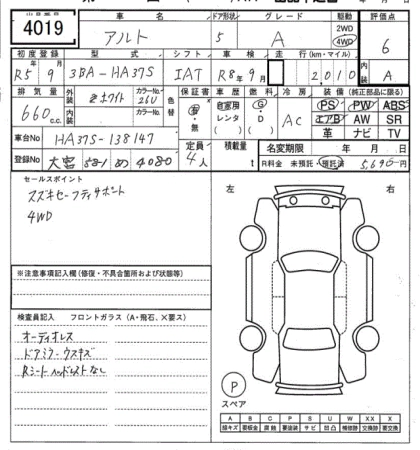 4019
車名 ドア形状 グレード 駆動 評価点
アルト 5 A 2WD 4WD 6
初度登録 型式 シフト 車検 走行(km・マイル) 内装
R5年9月 3BA-HA37S IAT R8年9月 2010 A
排気量 外装 カラーNo. 色替 保証書 車歴 燃料 冷房 装備(純正部品に限る)
660c.c. ホワイト 26U 有・無 自家用 レンタ G・D AC PS PW ABS
内装 カラーNo. エアB AW SR
革 ナビ TV
車台No HA37S-138147 定員 積載量 名変期限 年 月 日
登録No 大宮 581 め 4080 4人 t R料金 未預託・預託済 5,690円
セールスポイント 左 右
スズキセーフティサポート
4WD
※注意事項記入欄(修復・不具合箇所および状態等)
検査員記入 フロントガラス(A・飛石、×要ス)
オーディオレス
ドアミラーウスキズ
Rシートヘッドレストなし
P
スペア
A B C P S U W X XX
線キズ 要板金 腐蝕 要塗装 サビ 凹凸 補修跡 要交換 交換跡